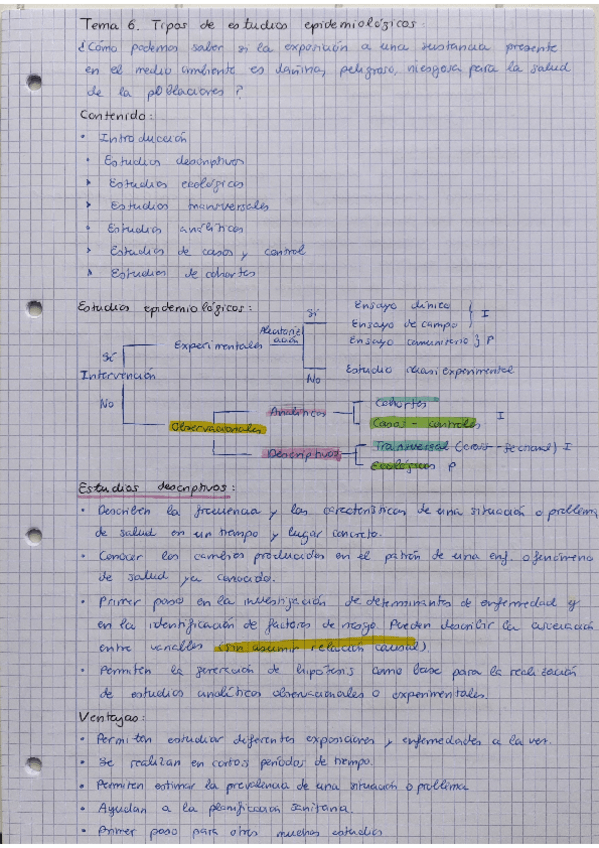 Tema 6. Tipos de estudios epidemiológicos:
¿Cómo podemos saber si la exposición a una sustancia presente
en el medio ambiente es dañina, peligrosa, riesgosa para la salud
de la poblaciones?
Contenido:
• Introducción
• Estudios descriptivos
• Estudios ecológicos
• Estudios transversales
• Estudios analíticos
• Estudios de casos y control
• Estudios de cohortes
Estudios epidemiológicos:
Intervención
Sí
Experimentales
Aleatoriz
ación
Sí
Ensayo clínico
Ensayo de campo } I
Ensayo comunitario } P
No
Estudio cuasi experimental
No
Observacionales
Analíticos
Cohortes
Casos - controles
I
Descriptivos
Transversal (cross-sectional) I
Ecológicos P
Estudios descriptivos:
• Describen la frecuencia y las características de una situación o problema
de salud en un tiempo y lugar concreto.
• Conocer los cambios producidos en el patrón de una enf. o fenómeno
de salud ya conocido.
• Primer paso en la investigación de determinantes de enfermedad y
en la identificación de factores de riesgo. Pueden describir la asociación
entre variables (sin asumir relación causal)
• Permiten la generación de hipótesis como base para la realización
de estudios analíticos observacionales o experimentales.
Ventajas:
• Permiten estudiar diferentes exposiciones y enfermedades a la vez.
• Se realizan en cortos períodos de tiempo.
• Permiten estimar la prevalencia de una situación o problema
• Ayudan a la planificación sanitaria.
• Primer paso para otros muchos estudios